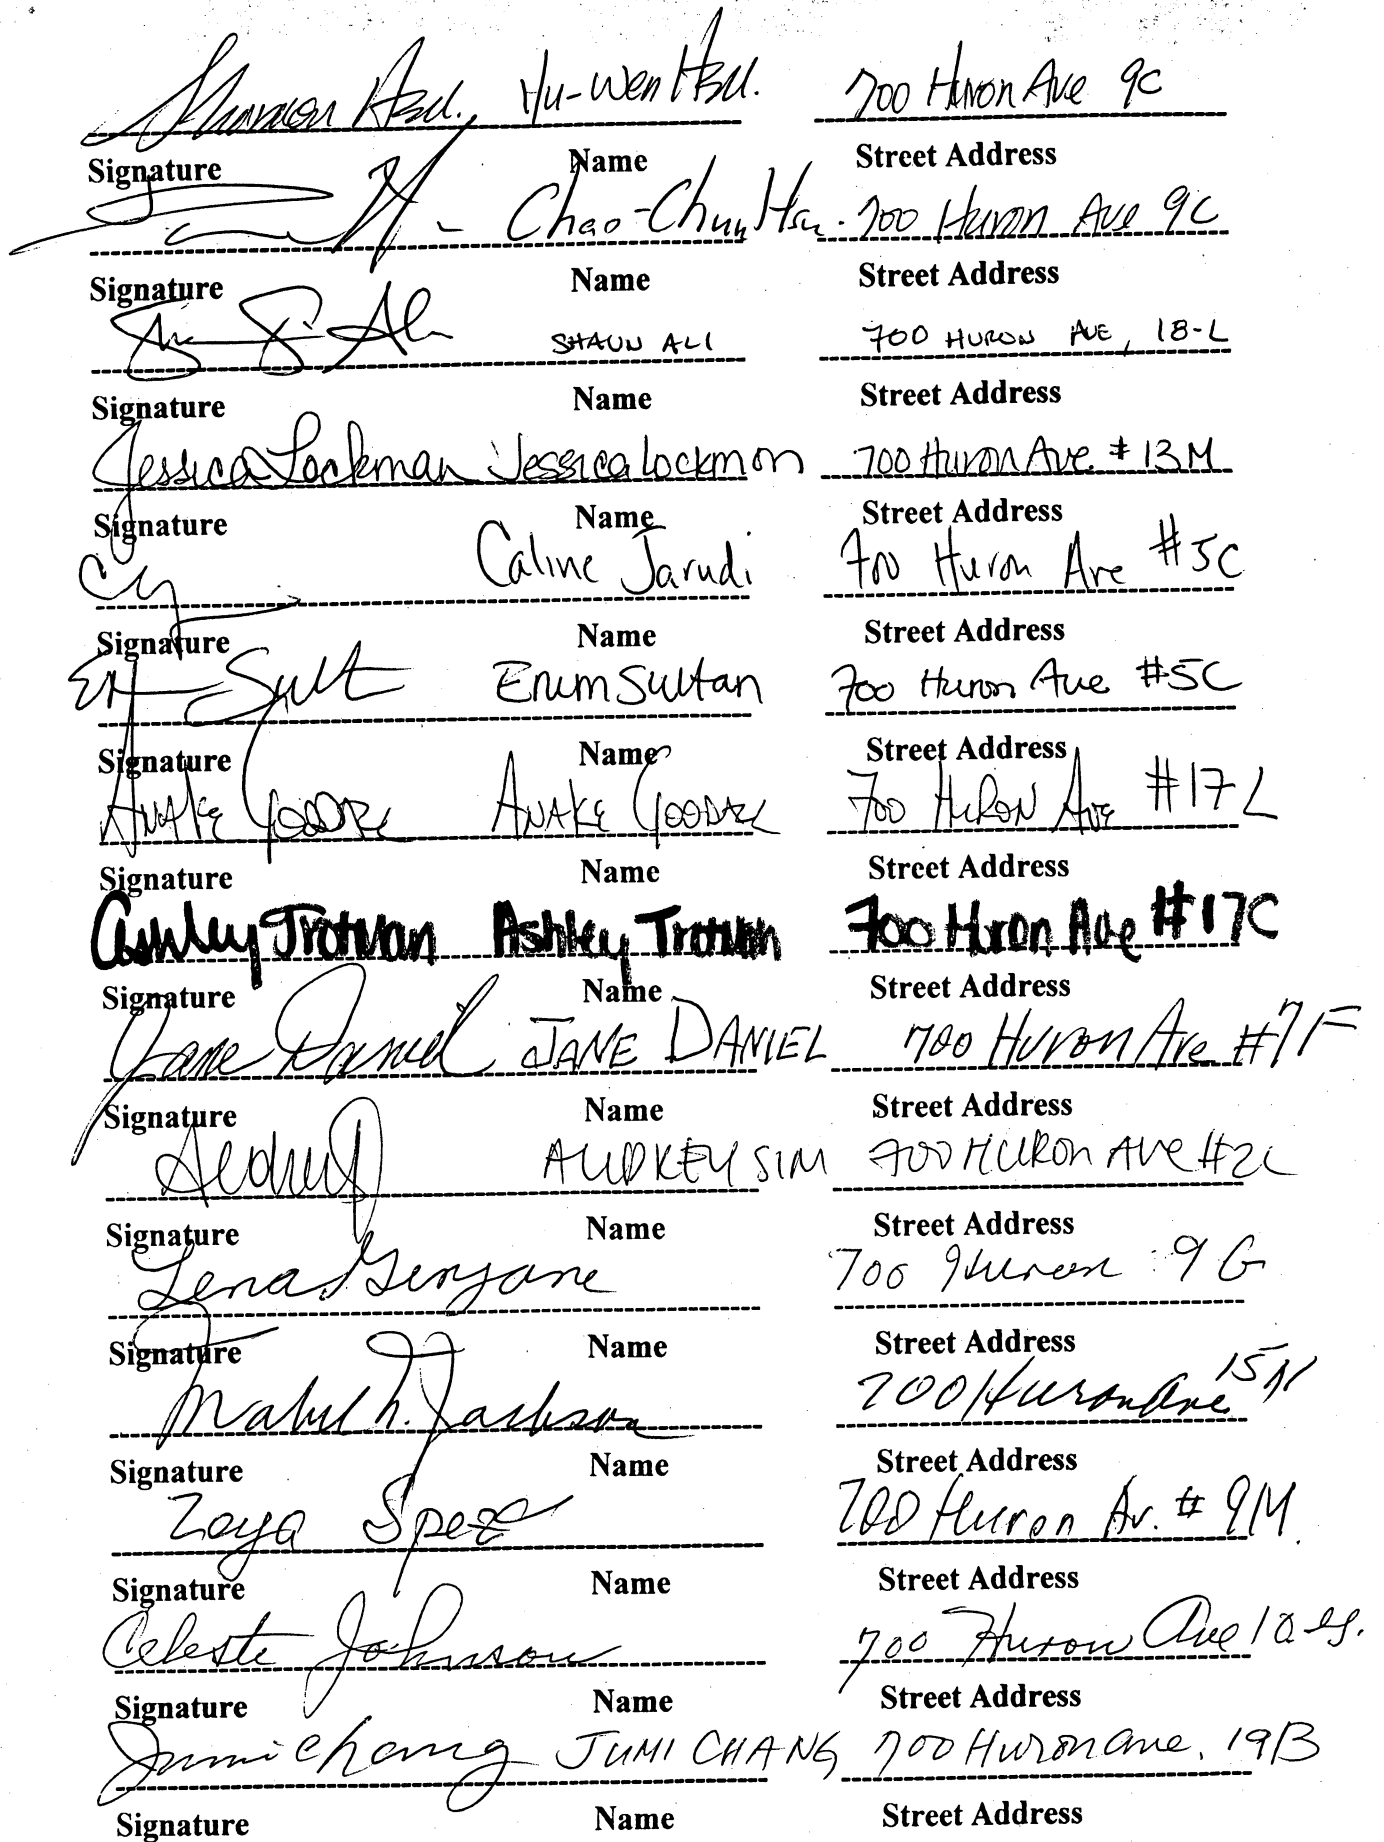 Shannon Hsu, Hu-Wen Hsu. 700 Huron Ave 9C
Signature Name Street Address
Chao-Chun Hsu. 700 Huron Ave 9C
Signature Name Street Address
SHAUN ALI 700 HURON AVE, 18-L
Signature Name Street Address
Jessica Lockman Jessica Lockman 700 Huron Ave # 13M
Signature Name Street Address
Caline Jarudi 700 Huron Ave #5C
Signature Name Street Address
Erum Sultan 700 Huron Ave #5C
Signature Name Street Address
ANAKE GOODALL ANAKE GOODALL 700 HURON AVE #17L
Signature Name Street Address
Ashley Trotman Ashley Trotman 700 Huron Ave #17C
Signature Name Street Address
Jane Daniel JANE DANIEL 700 Huron Ave #7F
Signature Name Street Address
Audrey AUDREY SIM 700 HURON AVE #2L
Signature Name Street Address
Lena 700 Huron 9G
Signature Name Street Address
Mabel h. Jackson 700 Huron Ave
Signature Name Street Address
Zoya Spez 700 Huron Av. # 9M.
Signature Name Street Address
Celeste Johnson 700 Huron Ave
Signature Name Street Address
Jumi Chang JUMI CHANG 700 Huron Ave. 19B
Signature Name Street Address